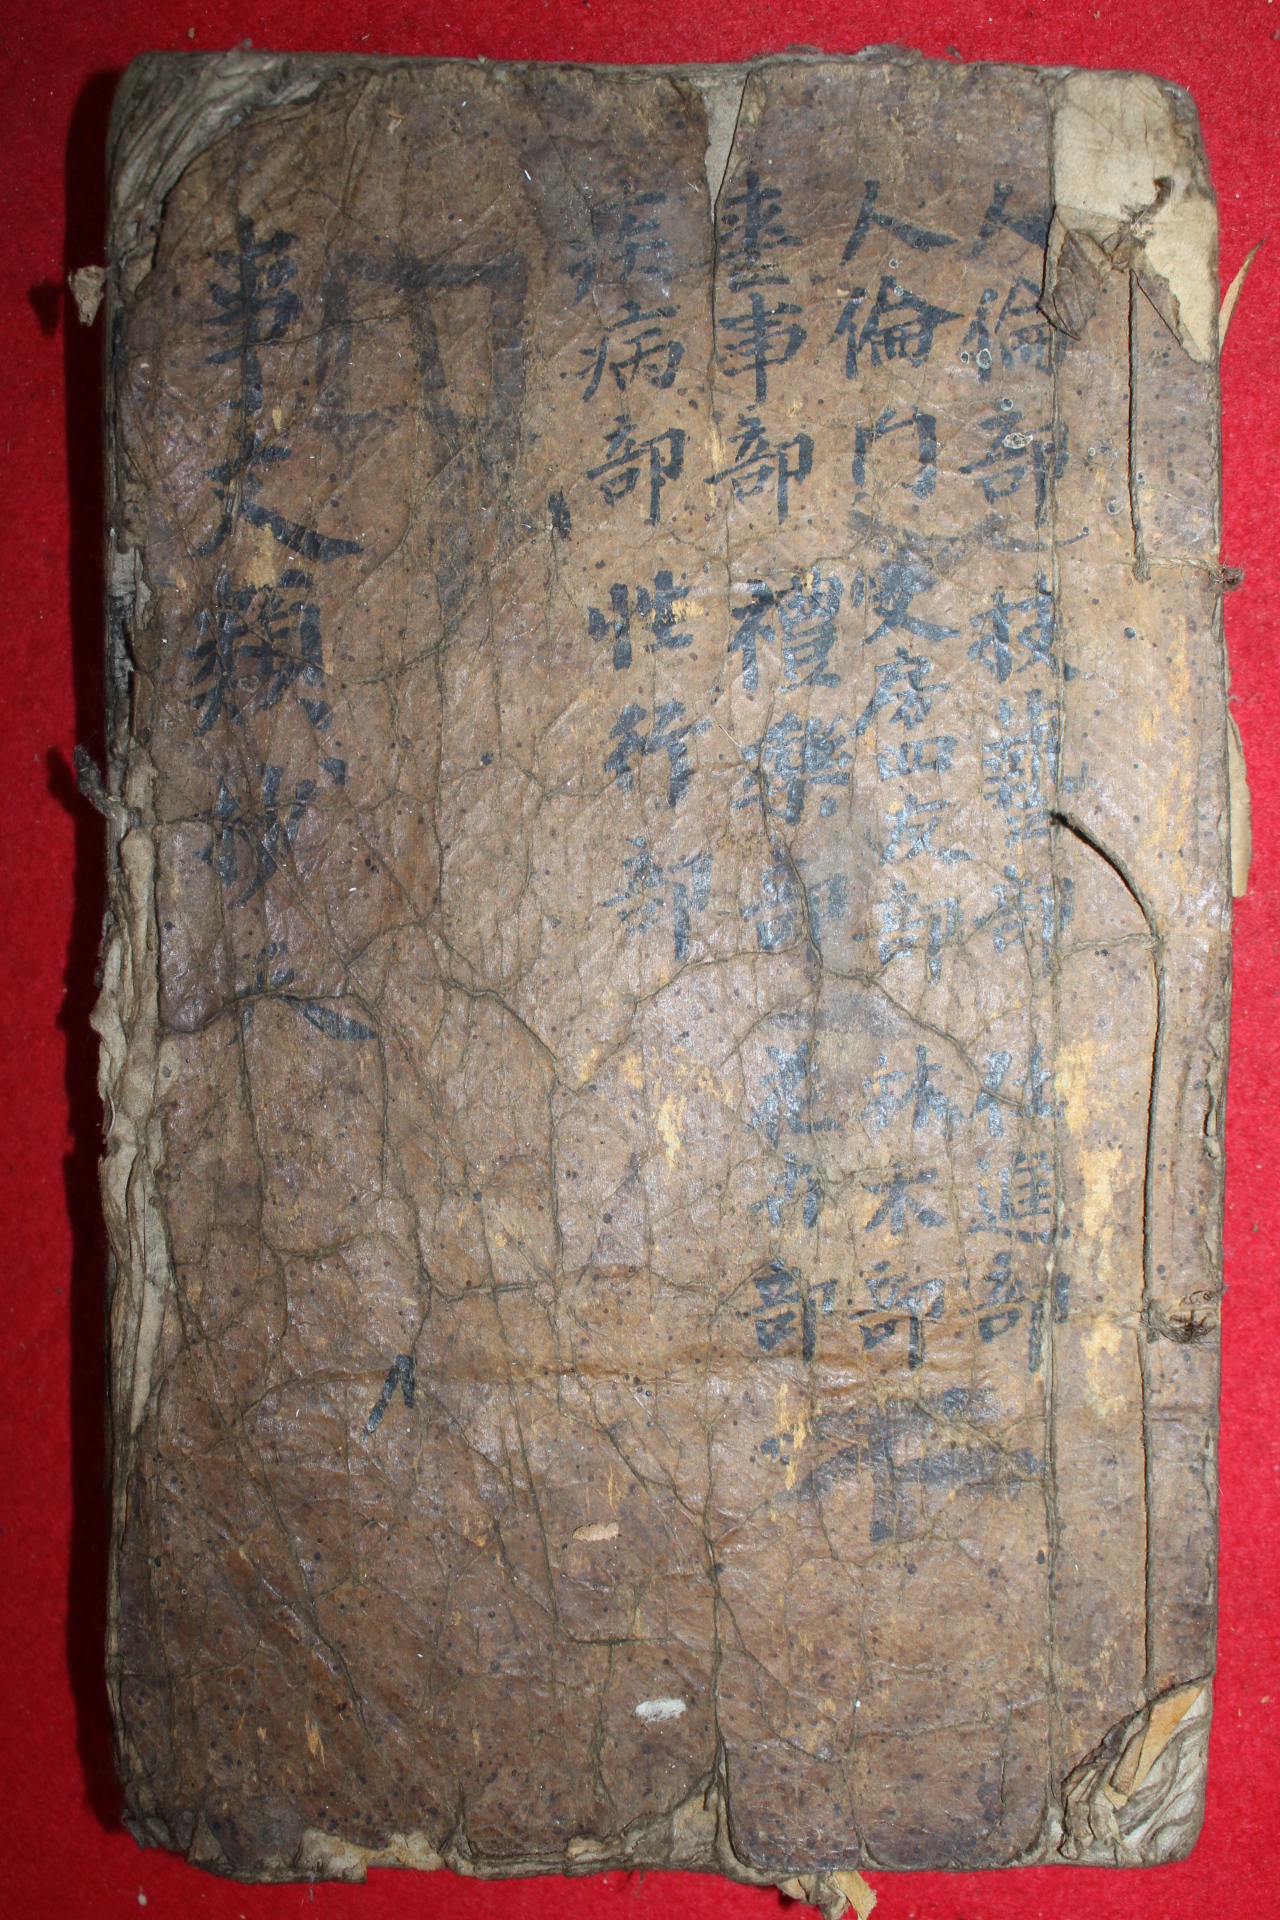 人倫部 技藝部 仕進部
人倫門 文房四友部 竹木部
喪事部 禮樂部 花卉部
疾病部 性行部
事文類抄